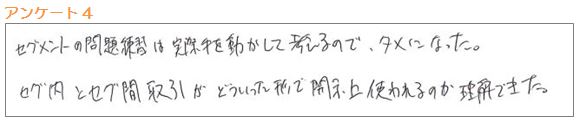 アンケート4
セグメントの問題練習は実際手を動かして考えるので、タメになった。
セグ内とセグ間取引がどういった形で開示上使われるのか理解できた。